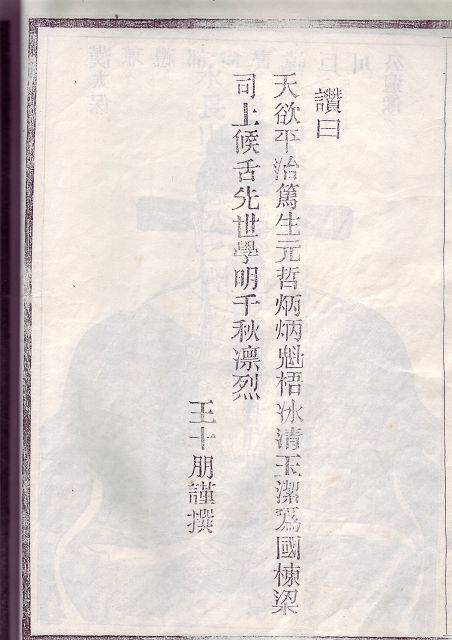 讚曰
天欲平治篤生元哲炳炳魁梧冰清玉潔爲國棟梁
司上候舌先世學明千秋凛烈
王十朋謹撰